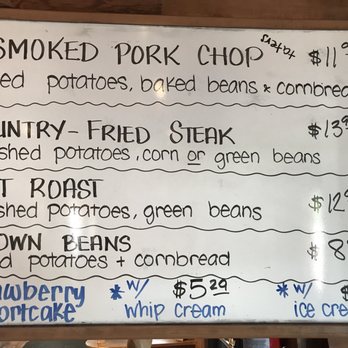 SMOKED PORK CHOP taters $11 9
ed potatoes, baked beans & cornbread
UNTRY-FRIED STEAK $13 9
shed potatoes, corn or green beans
T ROAST $12 9
shed potatoes, green beans
OWN BEANS $8
d potatoes + cornbread
awberry * w/ $5.29 * w/ $
ortcake whip cream ice cre